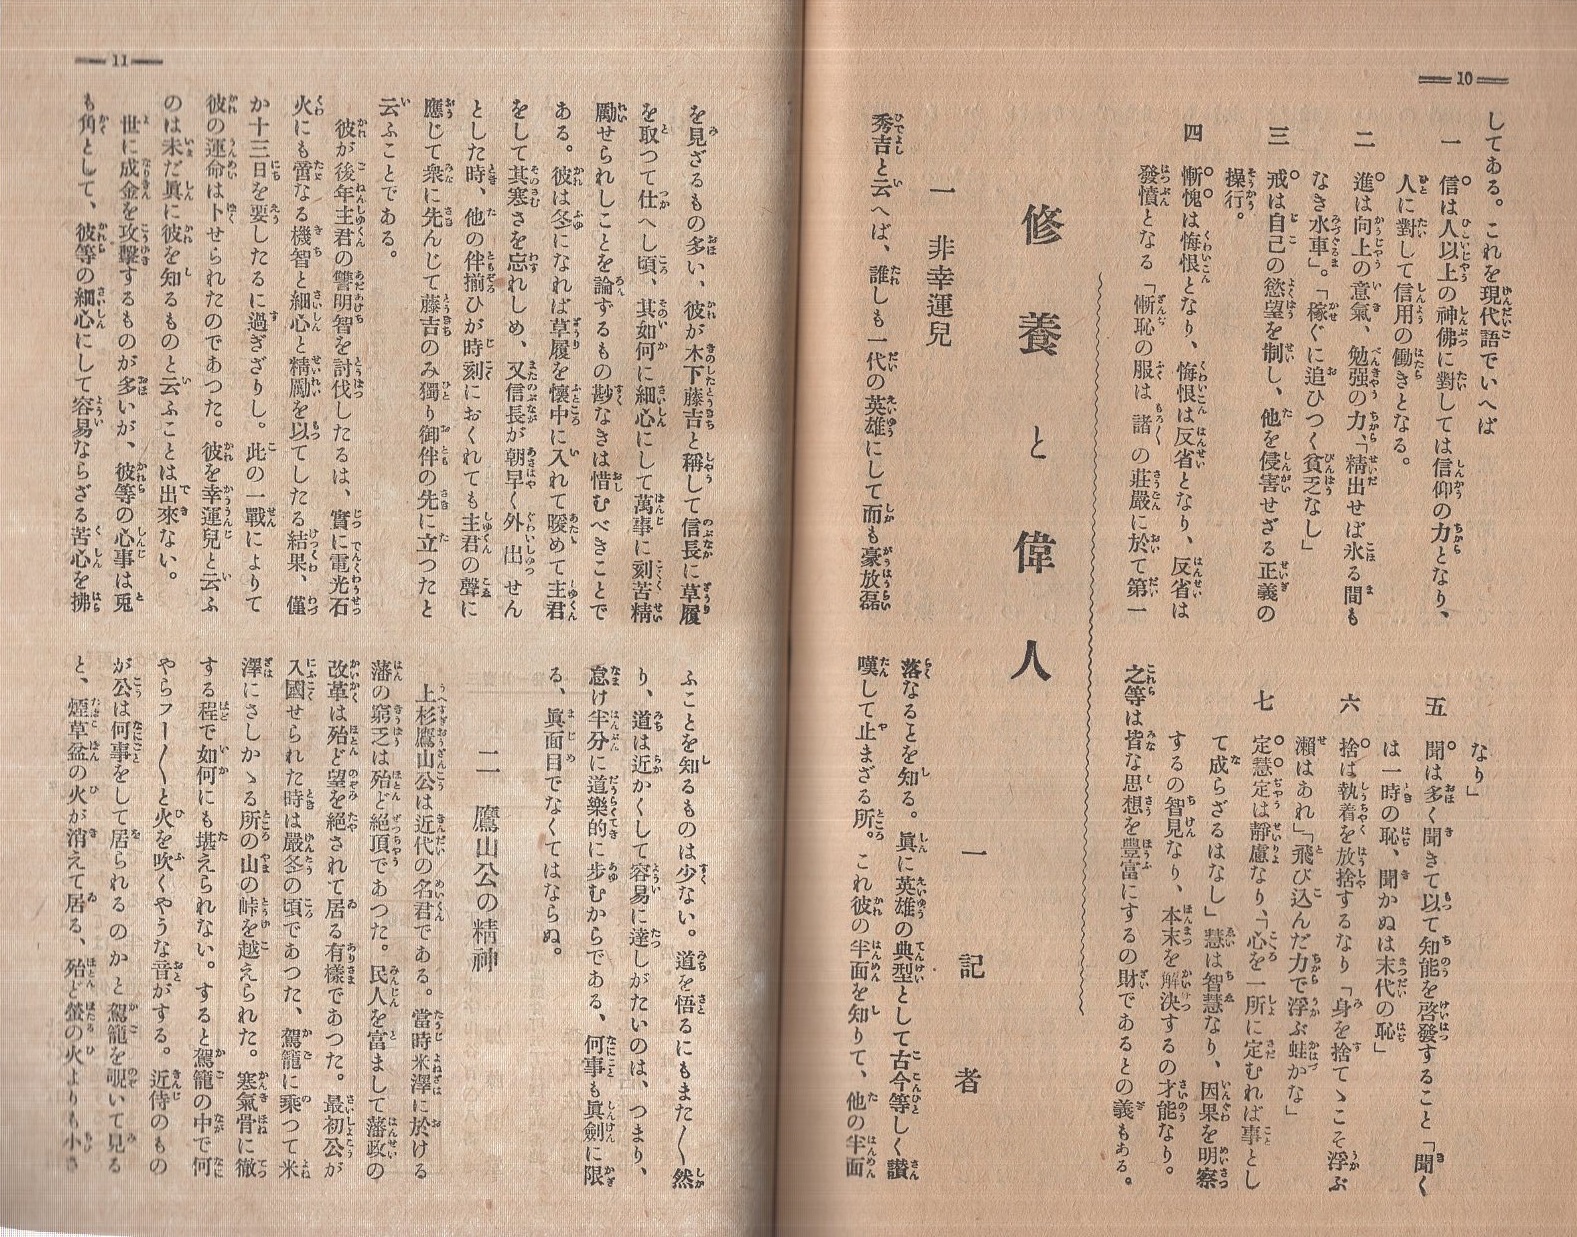 10
してある。これを現代語でいへば
一　信は人以上の神佛に對しては信仰の力となり、
人に對して信用の働きとなる。
二　進は向上の意氣、勉强の力、「精出せば氷る間も
なき水車」。「稼ぐに追ひつく貧乏なし」
三　戒は自己の慾望を制し、他を侵害せざる正義の
操行。
四　慚愧は悔恨となり、悔恨は反省となり、反省は
發憤となる「慚恥の服は諸〱の莊嚴に於て第一
なり」
五　聞は多く聞きて以て知能を啓發すること「聞く
は一時の恥、聞かぬは末代の恥」
六　捨は執着を放捨するなり「身を捨てゝこそ浮ぶ
瀨はあれ」「飛び込んだ力で浮ぶ蛙かな」
七　定慧定は靜慮なり、「心を一所に定むれば事とし
て成らざるはなし」慧は智慧なり、因果を明察
するの智見なり、本末を解決するの才能なり。
之等は皆な思想を豐富にするの財であるとの義もある。
修養と偉人
一記者
一　非幸運兒
秀吉と云へば、誰しも一代の英雄にして而も豪放磊
落なることを知る。眞に英雄の典型として古今等しく讃
嘆して止まざる所。これ彼の半面を知りて、他の半面
11
を見ざるもの多い、彼が木下藤吉と稱して信長に草履
を取つて仕へし頃、其如何に細心にして萬事に刻苦精
勵せられしことを論ずるもの尠なきは惜むべきことで
ある。彼は冬になれば草履を懷中に入れて暖めて主君
をして其寒さを忘れしめ、又信長が朝早く外出せん
とした時、他の伴揃ひが時刻におくれても主君の聲に
應じて衆に先んじて藤吉のみ獨り御伴の先に立つたと
云ふことである。
彼が後年主君の讐明智を討伐したるは、實に電光石
火にも啻なる機智と細心と精勵を以てしたる結果、僅
か十三日を要したるに過ぎざりし。此の一戰によりて
彼の運命は卜せられたのであつた。彼を幸運兒と云ふ
のは未だ眞に彼を知るものと云ふことは出來ない。
世に成金を攻擊するものが多いが、彼等の心事は兎
も角として、彼等の細心にして容易ならざる苦心を拂
ふことを知るものは少ない。道を悟るにもまた〱然
り、道は近かくして容易に達しがたいのは、つまり、
怠け半分に道樂的に步むからである、何事も眞劍に限
る、眞面目でなくてはならぬ。
二　鷹山公の精神
上杉鷹山公は近代の名君である。當時米澤に於ける
藩の窮乏は殆ど絕頂であつた。民人を富まして藩政の
改革は殆ど望を絕されて居る有樣であつた。最初公が
入國せられた時は嚴冬の頃であつた、駕籠に乘つて米
澤にさしかゝる所の山の峠を越えられた。寒氣骨に徹
する程で如何にも堪えられない。すると駕籠の中で何
やらフー〱と火を吹くやうな音がする。近侍のもの
が公は何事をして居られるのかと駕籠を覗いて見る
と、煙草盆の火が消えて居る、殆ど螢の火よりも小さ